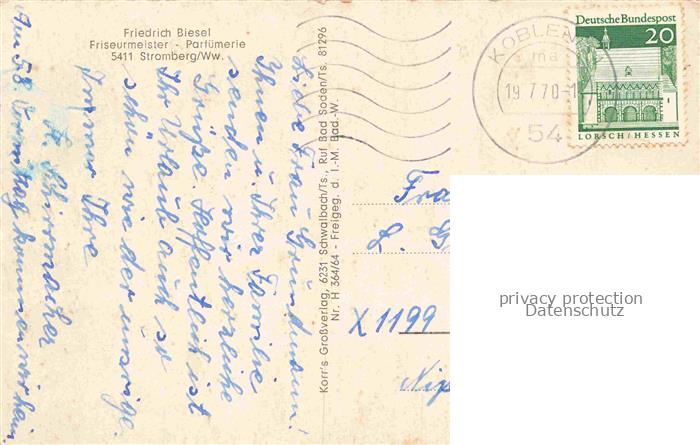 Friedrich Biesel
Friseurmeister - Parfümerie
5411 Stromberg/Ww.
Liebe Frau Grundmann!
Ihnen u. Ihrer Familie
senden wir herzliche
Grüße. Hoffentlich ist
Ihr Urlaub auch so
schön wie der unsrige.
Immer Ihre
H. Schirrmacher
Am 5.8. Vormittag kommen wir heim
Korr's Großverlag, 6231 Schwalbach/Ts., Ruf Bad Soden/Ts. 81296
Nr. H 364/64 - Freigeg. d. I.-M. Bad.-W.
KOBLEN
ma
19.7.70-1
54
Deutsche Bundespost
20
LORSCH/HESSEN
Fra
L. G
X 1199
privacy protection
Datenschutz